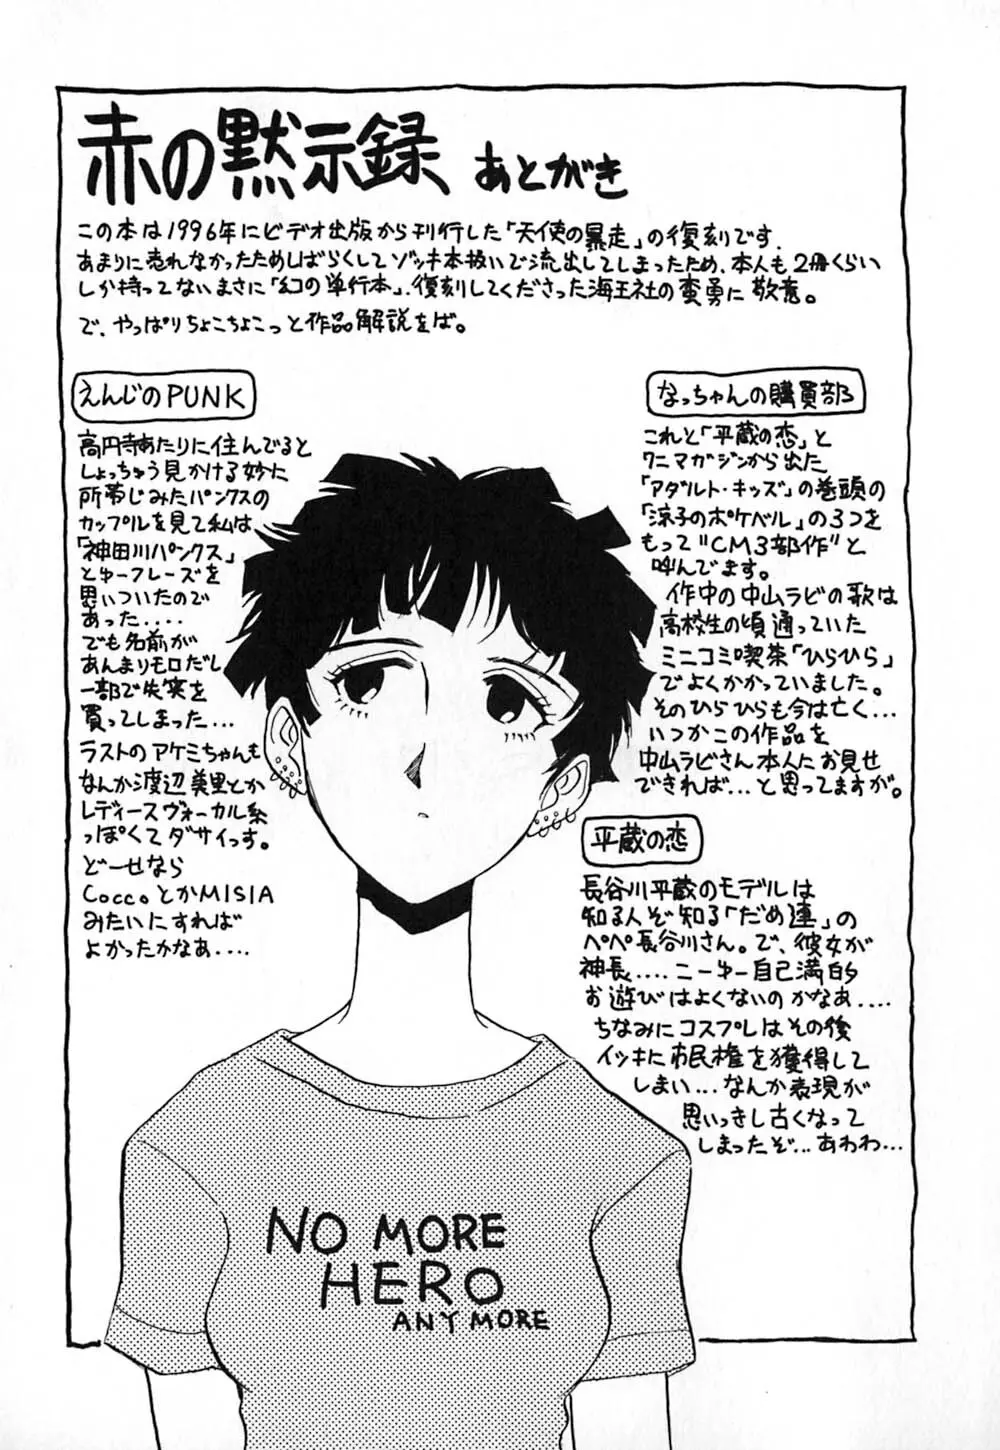 赤の黙示録 あとがき
この本は1996年にビデオ出版から刊行した「天使の暴走」の復刻です。
あまりに売れなかったためしばらくしてゾッキ本扱いで流出してしまったため、本人も2冊くらい
しか持ってないまさに「幻の単行本」。復刻してくださった海王社の蛮勇に敬意。
で、やっぱりちょこちょこっと作品解説をば。
えんじのPUNK
高円寺あたりに住んでると
しょっちゅう見かける妙に
所帯じみたパンクスの
カップルを見て私は
「神田川パンクス」
とゆーフレーズを
思いついたので
あった....
でも名前が
あんまりモロだし
一部で失笑を
買ってしまった...
ラストのアケミちゃんも
なんか渡辺美里とか
レディースヴォーカル系
っぽくてダサイっす。
どーせなら
CoccoとかMISIA
みたいにすれば
よかったかなあ....
なっちゃんの購買部
これと「平蔵の恋」と
ワニマガジンから出た
「アダルト・キッズ」の巻頭の
「涼子のポケベル」の3つを
もって"CM3部作"と
呼んでます。
作中の中山ラビの歌は
高校生の頃通っていた
ミニコミ喫茶「ひらひら」
でよくかかっていました。
そのひらひらも今は亡く...
いつかこの作品を
中山ラビさん本人にお見せ
できれば...と思ってますが。
平蔵の恋
長谷川平蔵のモデルは
知る人ぞ知る「だめ連」の
ペペ長谷川さん。で、彼女が
神長....こーゆー自己満的
お遊びはよくないのかなあ....
ちなみにコスプレはその後
イッキに市民権を獲得して
しまい...なんか表現が
思いっきし古くなって
しまったぞ...あわわ...
NO MORE
HERO
ANY MORE